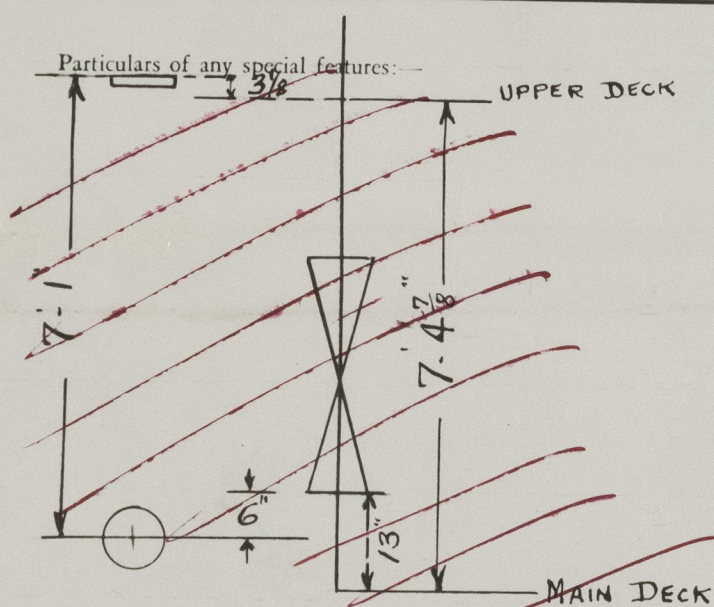 Particulars of any special features:—
3⅞
UPPER DECK
7'·1
7'·4⅞"
6"
13"
MAIN DECK